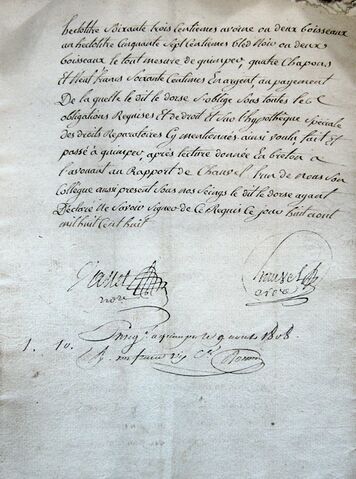 hectolitre Soixante trois Centiemes avoine ou deux boisseaux
un hectolitre Cinquante Sept Centiemes bled Noir ou deux
boisseaux le tout mesure de quimper, quatre Chapons
et Neuf francs Soixante Centimes En argent au payement
De la quelle le dit le dorse S'oblige Sous toutes les
obligations Requises et De droit et Sur l'hypothèque Speciale
des droits Reparatoires Cy mentionnés ainsi voulu fait et
passé à quimper, après lecture donnée En breton a
l'avouant au Rapport de Chauvel l'un de nous Son
Collègue aussi present Sous nos Seings le dit le dorse ayant
Déclaré Ne Savoir Signer de Ce Requis Ce jour huit aout
mil huit Cent huit
nore
Chauvel
1. 10.
Enreg. a quimper le 9 aout 1808